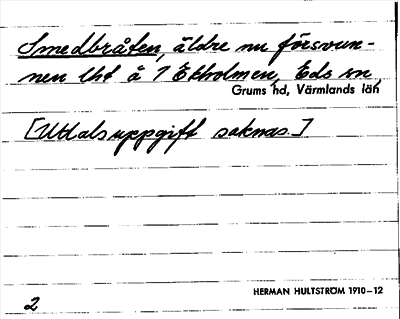 Smedbråten, äldre nu försvun-
nen lht å 1 Ekholmen, Eds sn,
Grums hd, Värmlands län
[Uttalsuppgift saknas.]
HERMAN HULTSTRÖM 1910–12
2